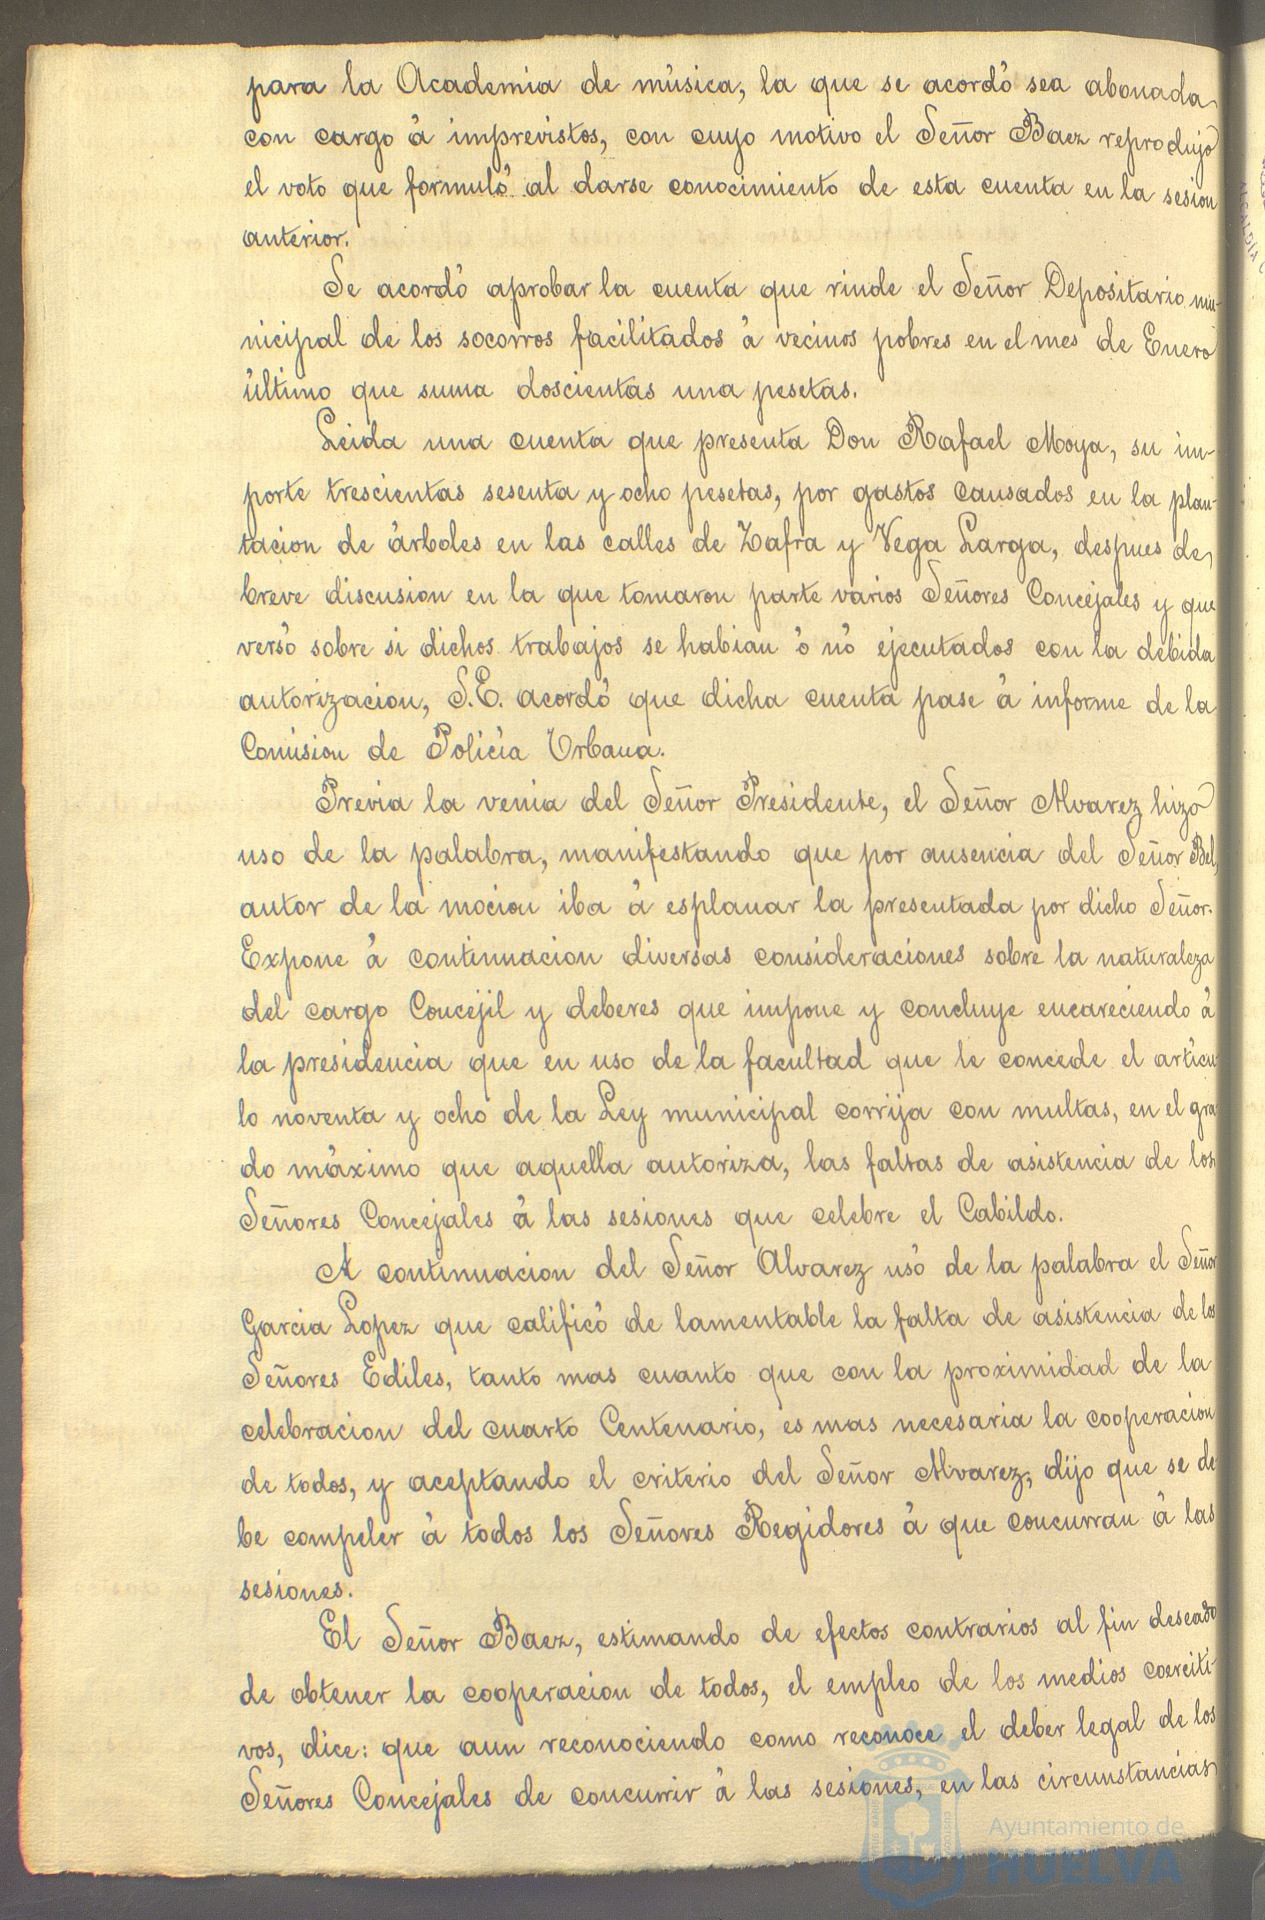 para la Academia de música, la que se acordó sea abonada
con cargo á imprevistos, con cuyo motivo el Señor Baez reprodujo
el voto que formuló al darse conocimiento de esta cuenta en la sesion
anterior.
Se acordó aprobar la cuenta que rinde el Señor Depositario mu-
nicipal de los socorros facilitados á vecinos pobres en el mes de Enero
último que suma doscientas una pesetas.
Leida una cuenta que presenta Don Rafael Moya, su im-
porte trescientas sesenta y ocho pesetas, por gastos causados en la plan-
tacion de árboles en las calles de Zafra y Vega Larga, despues de
breve discusion en la que tomaron parte varios Señores Concejales y que
versó sobre si dichos trabajos se habian ó nó ejecutados con la debida
autorizacion, S.E. acordó que dicha cuenta pase á informe de la
Comision de Policía Urbana.
Previa la venia del Señor Presidente, el Señor Alvarez hizo
uso de la palabra, manifestando que por ausencia del Señor Bel,
autor de la mocion iba á esplanar la presentada por dicho Señor.
Expone á continuacion diversas consideraciones sobre la naturaleza
del cargo Concejil y deberes que impone y concluye encareciendo á
la presidencia que en uso de la facultad que le concede el artícu-
lo noventa y ocho de la Ley municipal corrija con multas, en el gra
do máximo que aquella autoriza, las faltas de asistencia de los
Señores Concejales á las sesiones que celebre el Cabildo.
A continuacion del Señor Alvarez usó de la palabra el Señor
Garcia Lopez que calificó de lamentable la falta de asistencia de los
Señores Ediles, tanto mas cuanto que con la proximidad de la
celebracion del cuarto Centenario, es mas necesaria la cooperacion
de todos, y aceptando el criterio del Señor Alvarez, dijo que se de
be compeler á todos los Señores Regidores á que concurran á las
sesiones.
El Señor Baez, estimando de efectos contrarios al fin deseado
de obtener la cooperacion de todos, el empleo de los medios coerciti-
vos, dice: que aun reconociendo como reconoce el deber legal de los
Señores Concejales de concurrir á las sesiones, en las circunstancias
Ayuntamiento de
HUELVA